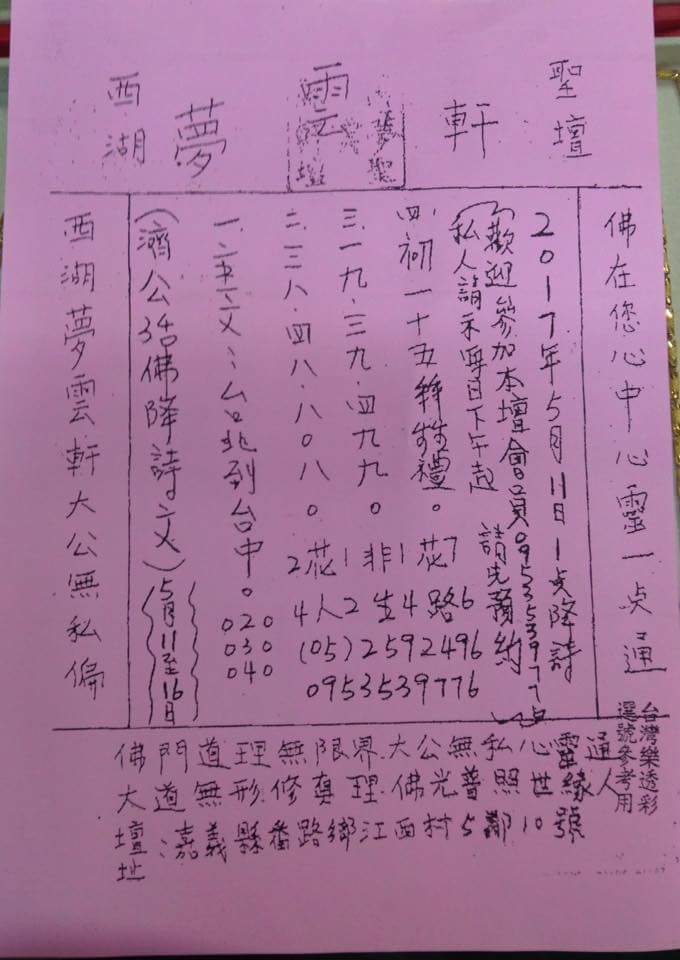 西湖夢雲軒聖壇
佛在您心中心靈一点通
2017年5月11日1点降詩
(歡迎參加本壇會員。
私人請示每日下午起 請先預約)
四.初一十五
三.一九.三九.四九九。
二.三八.四八.八0八。
台北到台中。
020
030
040
(濟公活佛降詩文)
5月11至16日
2花1非1花7
4人2生4路6
(05)2592496
0953539776
西湖夢雲軒大公無私偏
佛門道理無限界.大公無私心靈通
大道無形.修真理.佛光普照世緣人
壇址:嘉義縣番路鄉江西村5鄰10號
台灣樂透彩
選號參考用